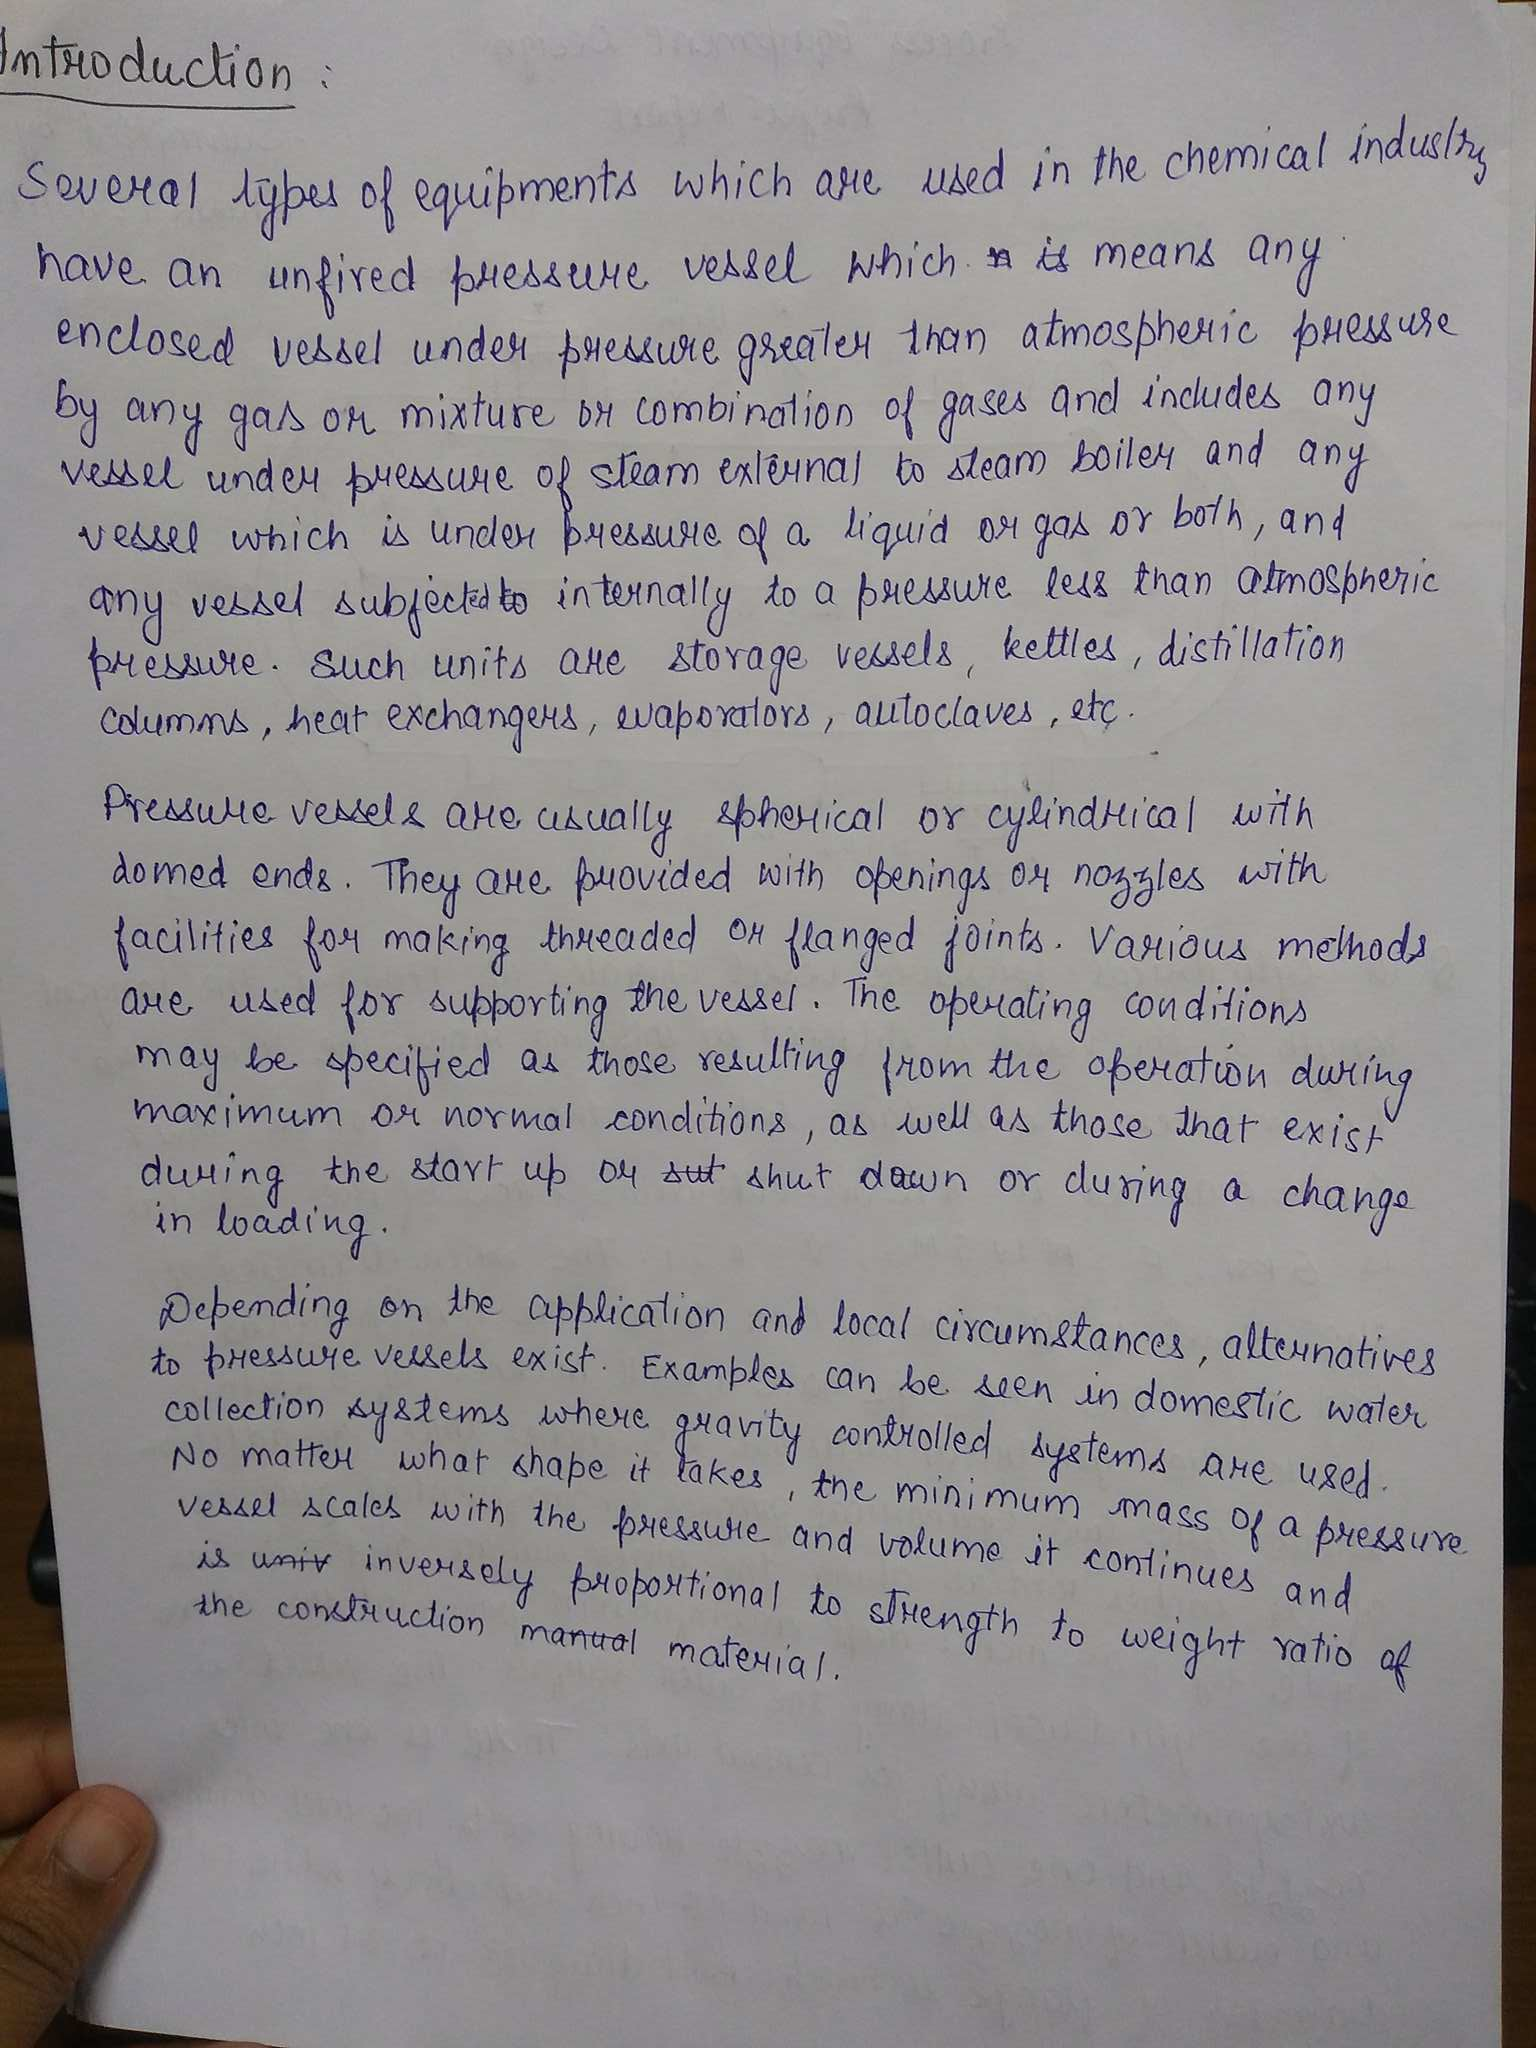 Introduction :
Several types of equipments which are used in the chemical industry
have an unfired pressure vessel which is means any
enclosed vessel under pressure greater than atmospheric pressure
by any gas or mixture or combination of gases and includes any
vessel under pressure of steam external to steam boiler and any
vessel which is under pressure of a liquid or gas or both, and
any vessel subjected to internally to a pressure less than atmospheric
pressure. Such units are storage vessels, kettles, distillation
columns, heat exchangers, evaporators, autoclaves, etc.
Pressure vessels are usually spherical or cylindrical with
domed ends. They are provided with openings or nozzles with
facilities for making threaded or flanged joints. Various methods
are used for supporting the vessel. The operating conditions
may be specified as those resulting from the operation during
maximum or normal conditions, as well as those that exist
during the start up or sut shut down or during a change
in loading.
Depending on the application and local circumstances, alternatives
to pressure vessels exist. Examples can be seen in domestic water
collection systems where gravity controlled systems are used.
No matter what shape it takes, the minimum mass of a pressure
vessel scales with the pressure and volume it continues and
is univ inversely proportional to strength to weight ratio of
the construction manual material.